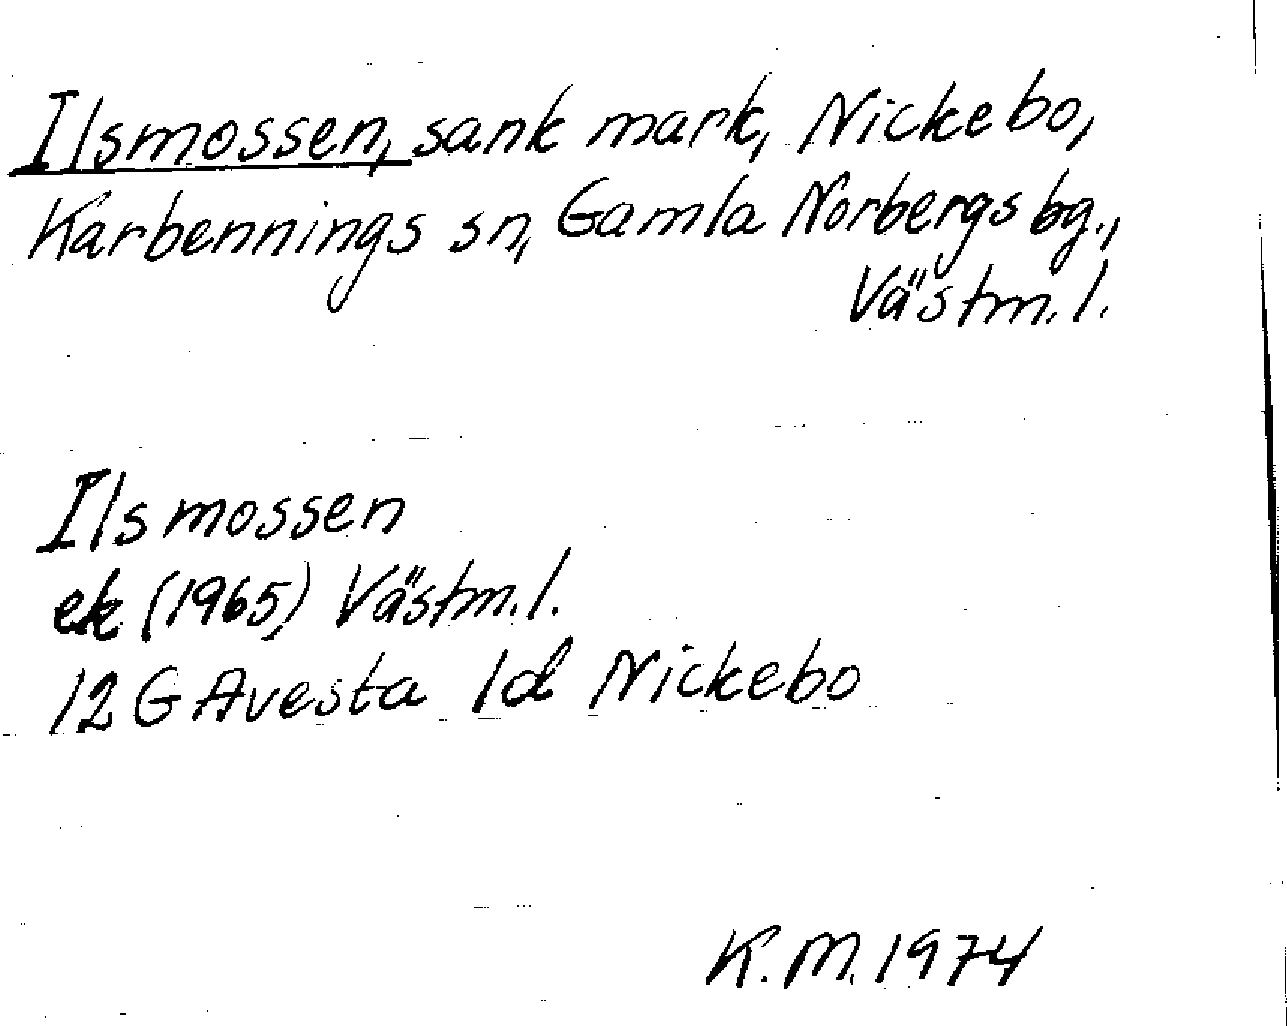 Ilsmossen, sank mark, Nickebo,
Karbennings sn, Gamla Norbergs bg.,
Västm. l.
Ilsmossen
ek (1965) Västm. l.
12 G Avesta 1d Nickebo
K. M. 1974